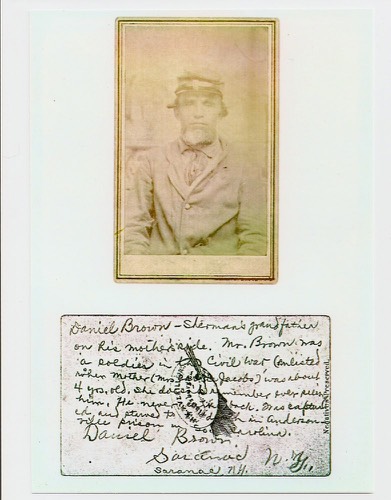 Daniel Brown - Sherman's grandfather
on his mother's side. Mr. Brown was
a soldier in the Civil War (enlisted
when mother (Mrs Jacobs) was about
4 yrs. old. She doesn't remember ever seeing
him. He never came back. Was captur
ed, and starved to death in Anderson
ville prison in Carolina.
Daniel Brown.
Saranac N.Y.
Saranac N.Y.
Negatives Preserved.